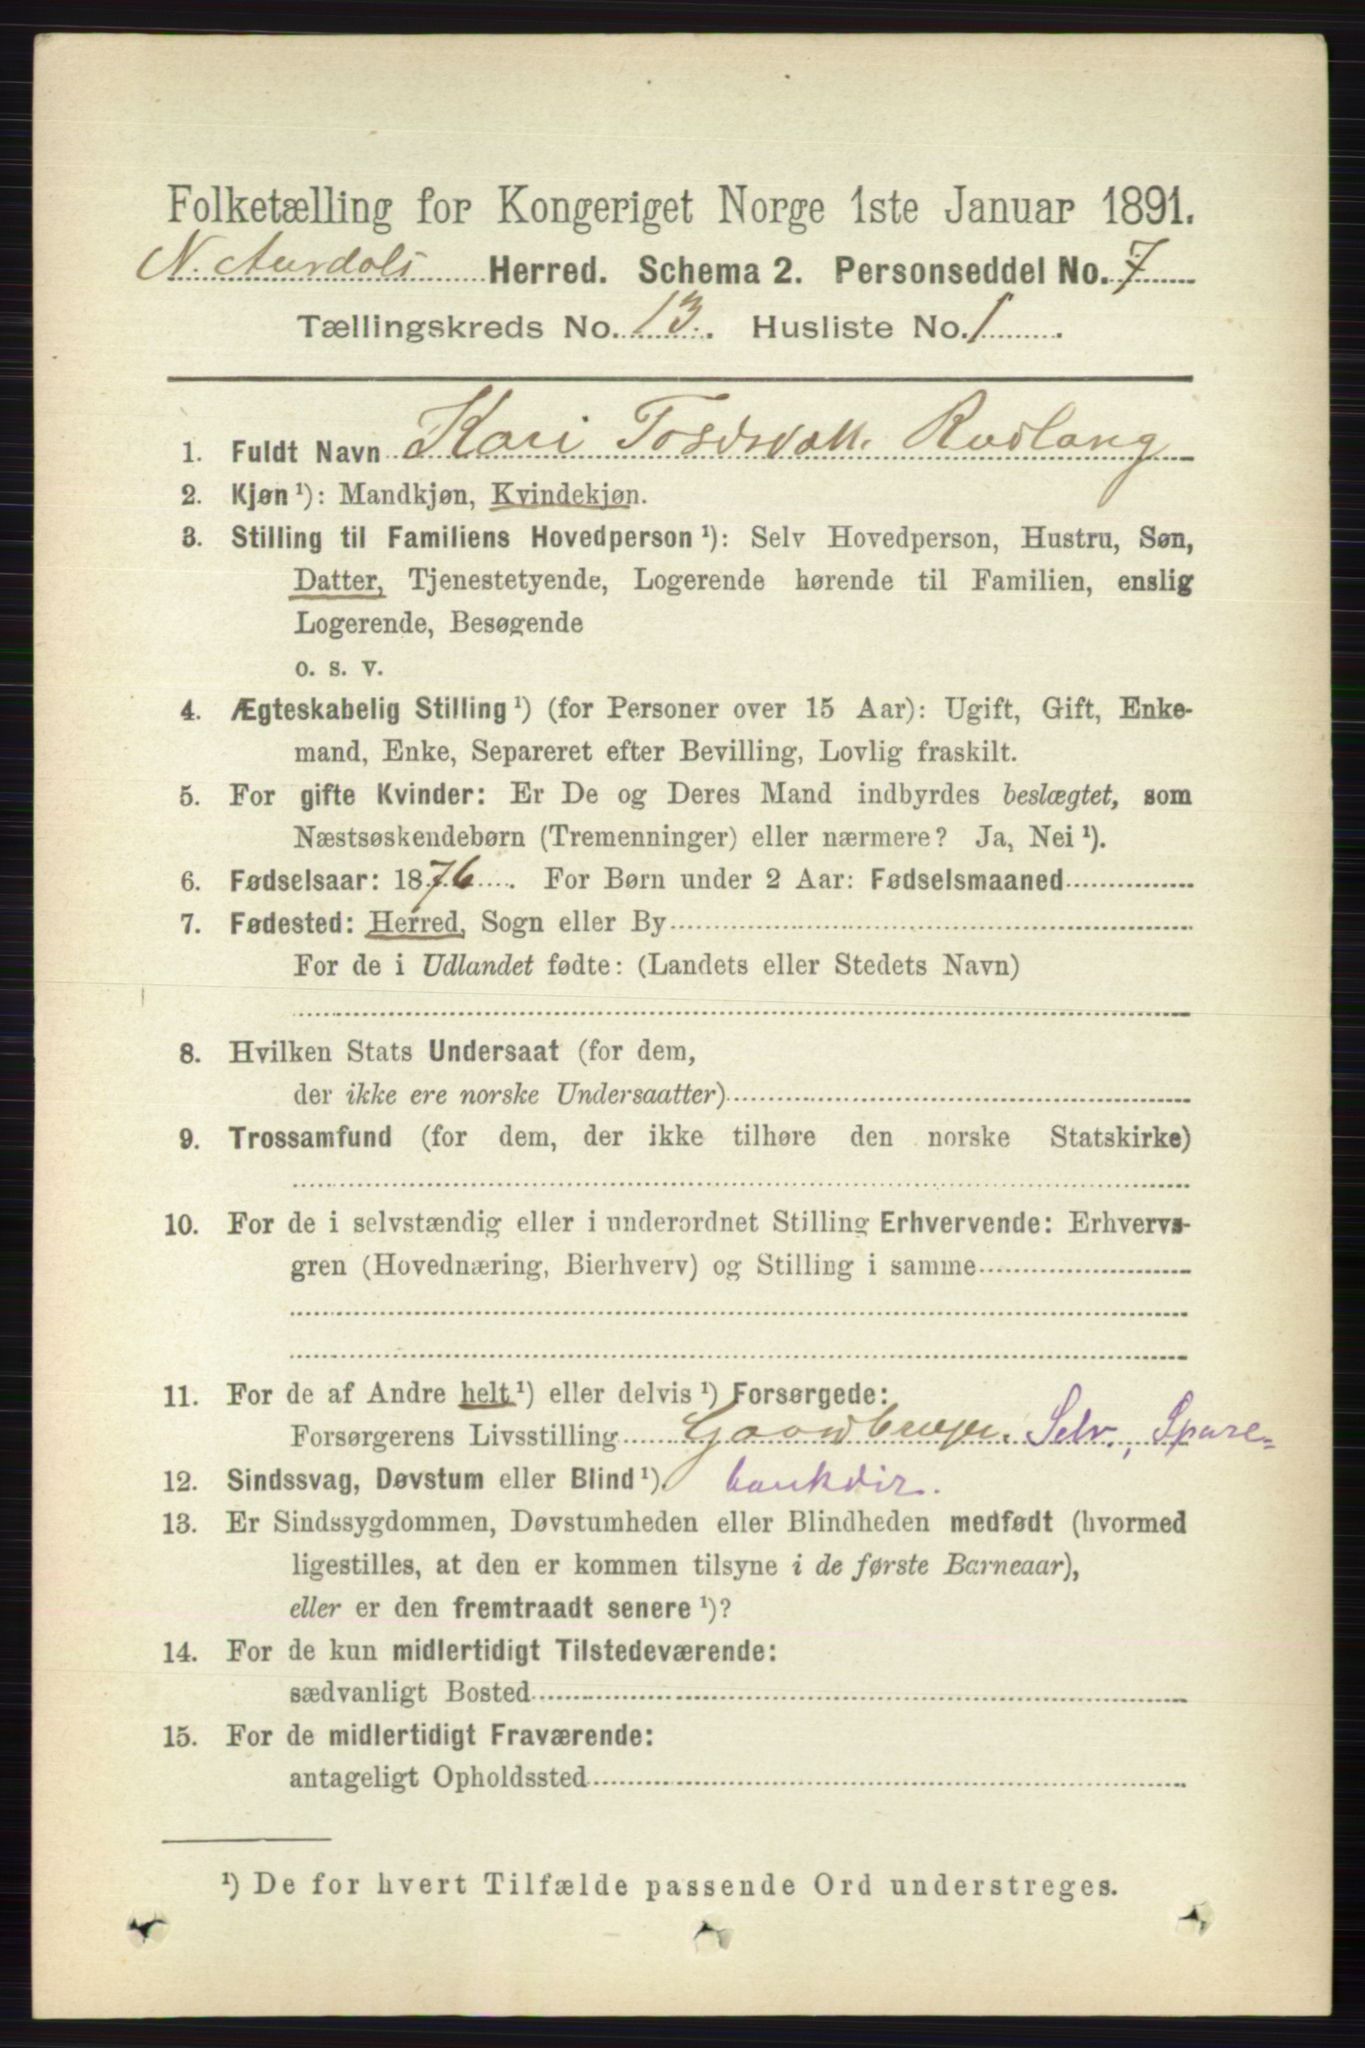 Folketælling for Kongeriget Norge 1ste Januar 1891.
N. Aurdals Herred. Schema 2. Personseddel No. 7
Tællingskreds No. 13. Husliste No. 1.
1. Fuldt Navn Kari Rudlang
2. Kjøn ¹): Mandkjøn, Kvindekjøn.
3. Stilling til Familiens Hovedperson ¹): Selv Hovedperson, Hustru, Søn,
Datter, Tjenestetyende, Logerende hørende til Familien, enslig
Logerende, Besøgende
o. s. v.
4. Ægteskabelig Stilling ¹) (for Personer over 15 Aar): Ugift, Gift, Enke-
mand, Enke, Separeret efter Bevilling, Lovlig fraskilt.
5. For gifte Kvinder: Er De og Deres Mand indbyrdes beslægtet, som
Næstsøskendebørn (Tremenninger) eller nærmere? Ja, Nei ¹).
6. Fødselsaar: 1876. For Børn under 2 Aar: Fødselsmaaned
7. Fødested: Herred, Sogn eller By
For de i Udlandet fødte: (Landets eller Stedets Navn)
8. Hvilken Stats Undersaat (for dem,
der ikke ere norske Undersaatter)
9. Trossamfund (for dem, der ikke tilhøre den norske Statskirke)
10. For de i selvstændig eller i underordnet Stilling Erhvervende: Erhvervs-
gren (Hovednæring, Bierhverv) og Stilling i samme
11. For de af Andre helt ¹) eller delvis ¹) Forsørgede:
Forsørgerens Livsstilling Gaardbruger. Selv., Spare-
12. Sindssvag, Døvstum eller Blind ¹). bankdir.
13. Er Sindssygdommen, Døvstumheden eller Blindheden medfødt (hvormed
ligestilles, at den er kommen tilsyne i de første Barneaar),
eller er den fremtraadt senere ¹)?
14. For de kun midlertidigt Tilstedeværende:
sædvanligt Bosted
15. For de midlertidigt Fraværende:
antageligt Opholdssted
¹) De for hvert Tilfælde passende Ord understreges.